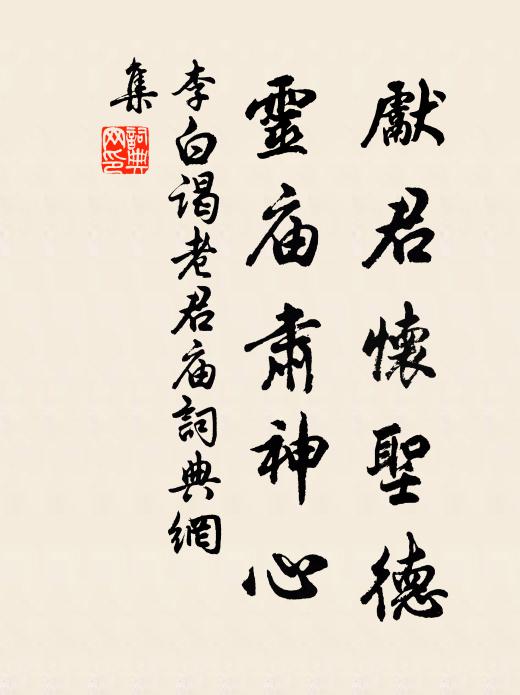 獻君懷聖德
靈庙肅神心
李白謁老君庙詞典網
集
詞典
网印